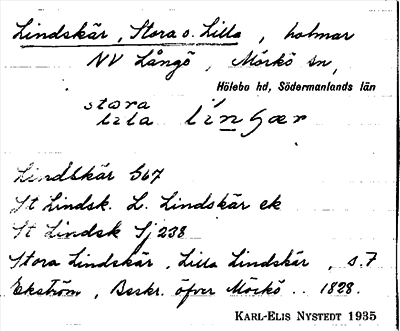 Lindskär, Stora o. Lilla, holmar
NV Långö, Mörkö sn,
Hölebo hd, Södermanlands län
stora
lila linsær
Lindskär G67
St Lindsk. L. Lindskär ek
St Lindsk Sj 238
Stora Lindskär, Lilla Lindskär, s. 7
Ekström, Beskr. öfver Mörkö .. 1828.
KARL-ELIS NYSTEDT 1935